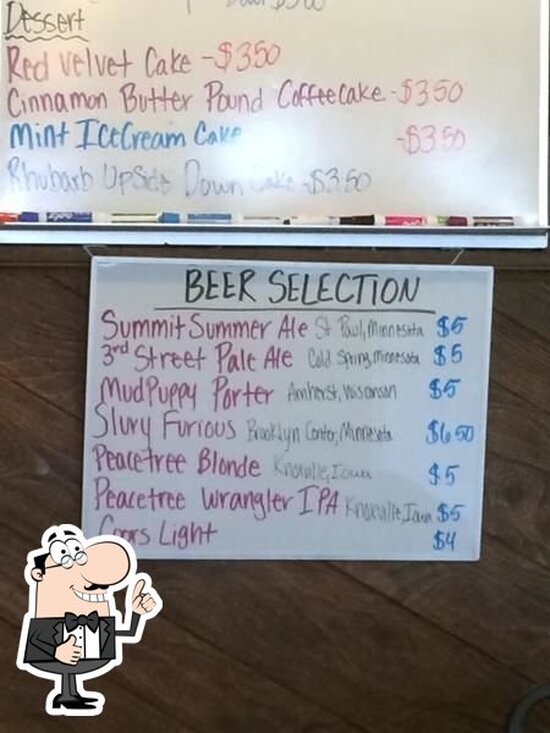 Dessert
Red Velvet Cake - $350
Cinnamon Butter Pound Coffeecake - $350
Mint IceCream Cake - $350
Rhubarb Upside Down Cake - $3.50
BEER SELECTION
Summit Summer Ale St Paul, Minnesota $5
3rd Street Pale Ale Cold Spring, Minnesota $5
MudPuppy Porter Amherst, Wisconsin $5
Slury Furious Brooklyn Center, Minnesota $6.50
Peacetree Blonde Knoxville, Iowa $5
Peacetree Wrangler IPA Knoxville, Iowa $5
Coors Light $4